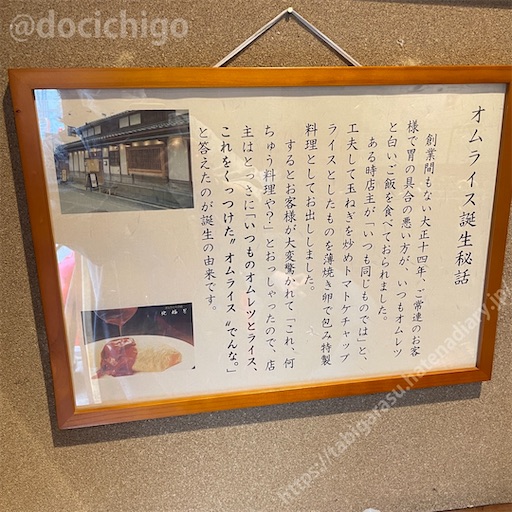 @docichigo
オムライス誕生秘話
創業間もない大正十四年、ご常連のお客
様で胃の具合の悪い方が、いつもオムレツ
と白いご飯を食べておられました。
ある時店主が「いつも同じものでは」と、
工夫して玉ねぎを炒めトマトケチャップ
ライスとしたものを薄焼き卵で包み特製
料理としてお出ししました。
するとお客様が大変驚かれて「これ、何
ちゅう料理や？」とおっしゃったので、店
主はとっさに「いつものオムレツとライス、
これをくっつけた〝オムライス〟でんな。」
と答えたのが誕生の由来です。
北極星
https://tabigarasu.hatenadiary.jp/